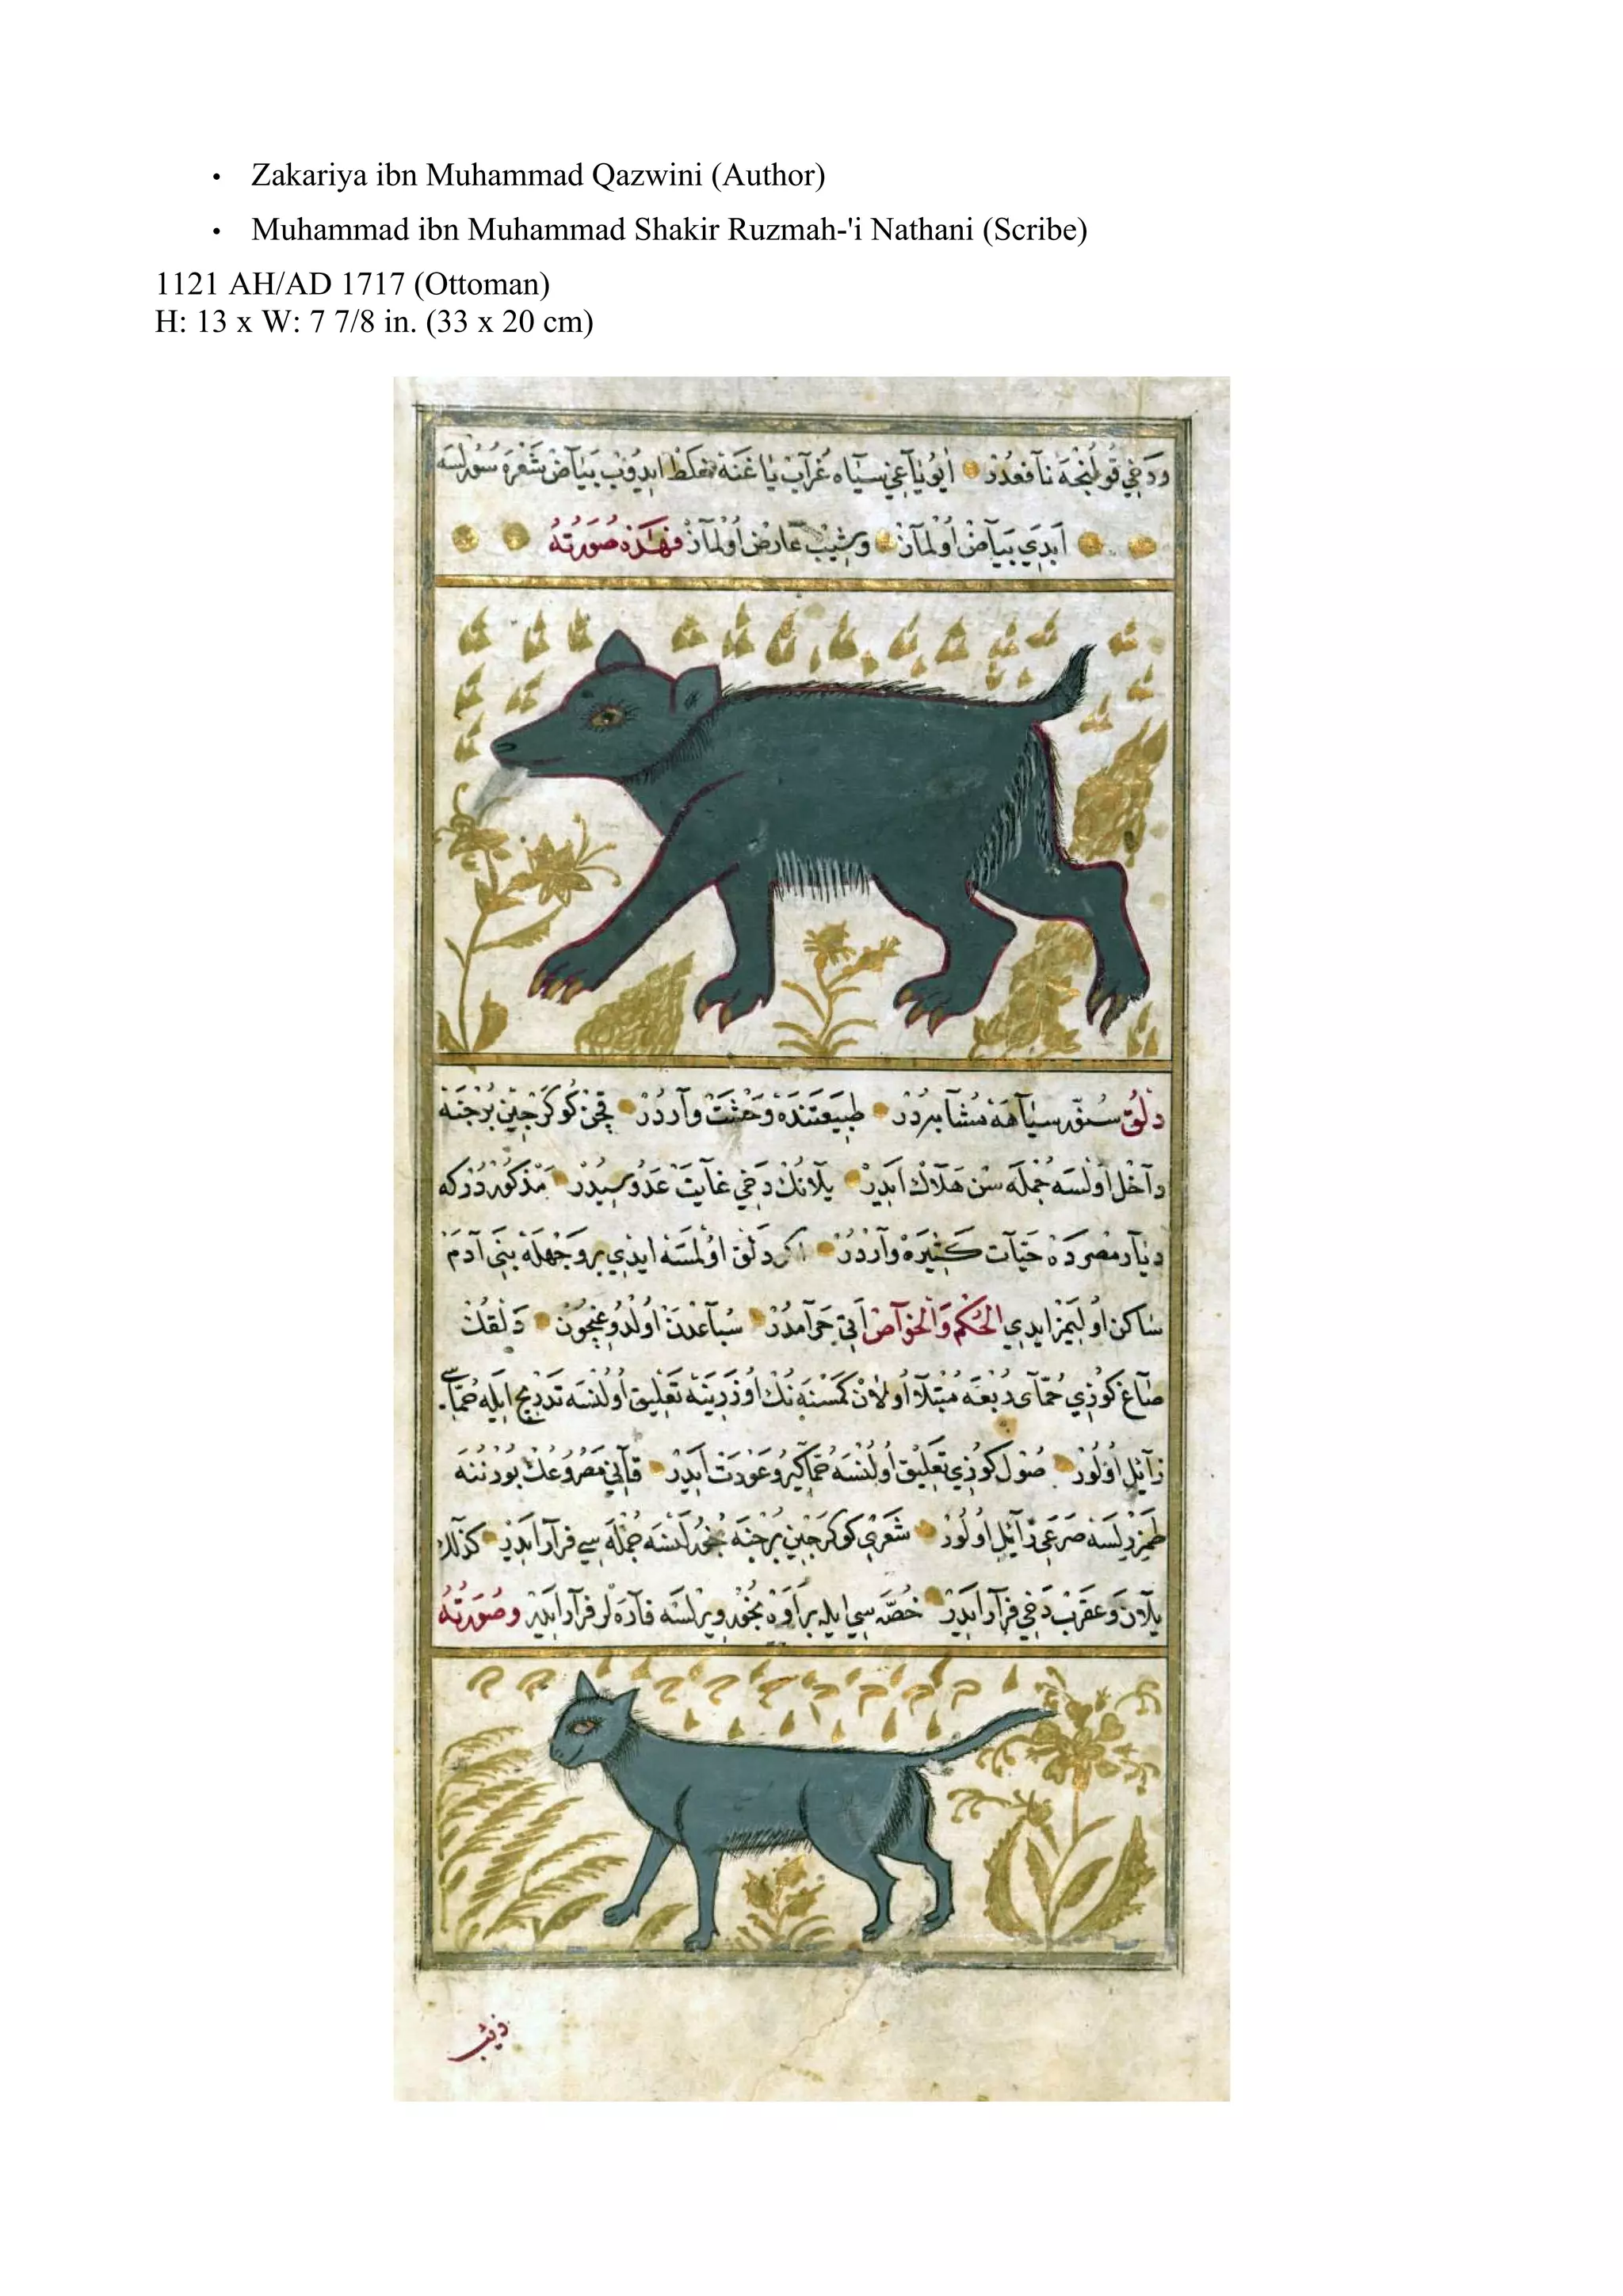 • Zakariya ibn Muhammad Qazwini (Author)
• Muhammad ibn Muhammad Shakir Ruzmah-'i Nathani (Scribe)
1121 AH/AD 1717 (Ottoman)
H: 13 x W: 7 7/8 in. (33 x 20 cm)
ودخي قولنجه نافعدر ايو ياغي سياه غراب ياغنه خلط ايدوب بياض شعره سورلسه
ابدي بياض اولماز وشيب عارض اولماز فهذه صورته
دلق سنور سياهه مشابهدر طبيعتنده وحشت واردر قچن كوكرجين برجنه
داخل اولسه جمله سن هلاك ايدر يلانك دخي غايت عدوسيدر مذكوردركه
ديار مصرده حيات كثيره واردر اكر دلق اولمسه ايدي بر وجهله بني آدم
ساكن اوليمز ايدي الحكم والخواص اتي حرامدر سباعدن اولدوغيچون دلقك
صاغ كوزي حماى ربعه مبتلا اولان كمسنه نك اوزرينه تعليق اولنسه تدريج ايله حماسي
زائل اولور صول كوزي تعليق اولنسه حما كيرو عودت ايدر قاني مصروعك بورننه
طمزرلسه صرعي زائل اولور شعري كوكرجين برجنه بخور اولنسه جمله سي فرار ايدر كذلك
يلان وعقرب دخي فرار ايدر خصه سي ايله بر اوه بخور ويرلسه فاره لر فرار ايدر وصورته
ذيب